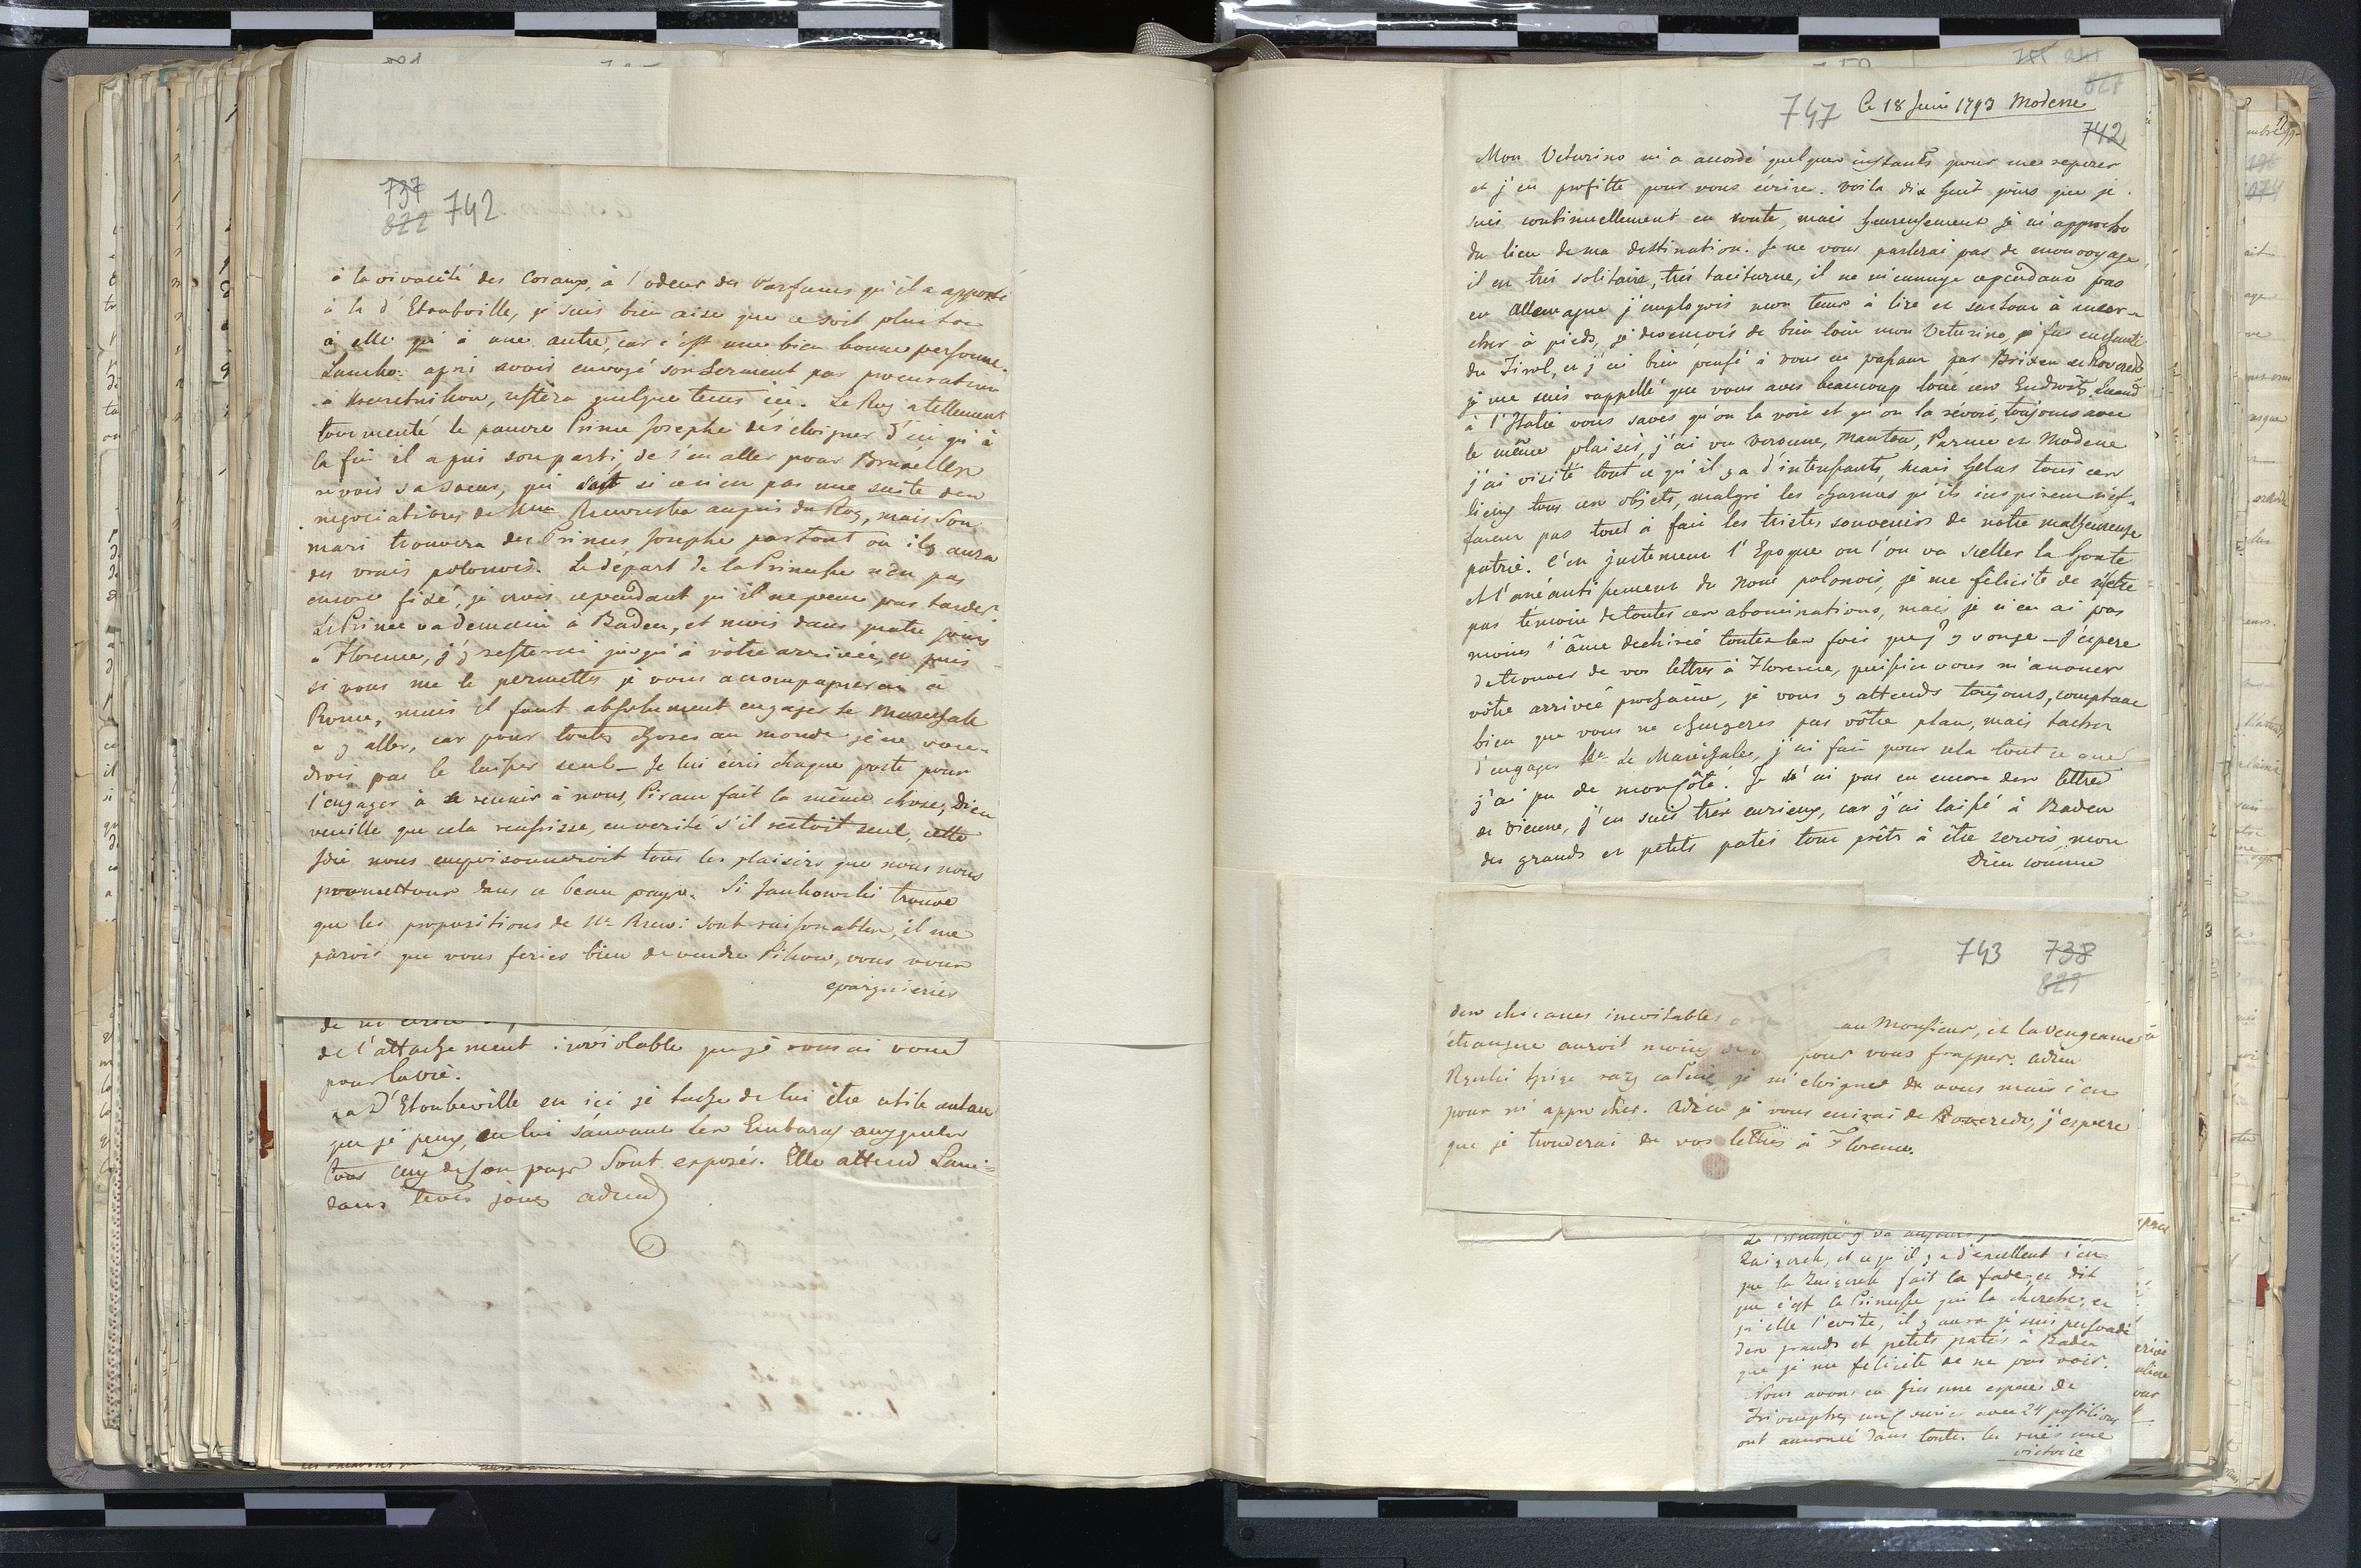 737
822 742
à la vivacité des Cosaux, à l'odeur des Parfums qu'il a apporté
à la d'Etoubville, je suis bien aise que ce soit plustot
à elle qu'à une autre, car c'est une bien bonne personne.
Lancko: apri avoir envoyé son Serment par procuration
à restera quelque tems ici. Le Roy a tellement
tourmenté le pauvre Prince Josephe de s'éloigner d'ici qu'à
la fin il a pris son parti, de s'en aller pour Bruxelles
revoir sa soeur, qui sait si ceci en pas une suite des
negociations de auprès du Roy, mais Son
mari trouvera des Princes Josephe partout ou il y aura
des vrais polonois. Le départ de la Princesse n'en pas
encore fixé, je crois cependant qu'il ne peut pas tarder
Le Prince va demain à Baden, et mois dans quatre jours
à Florence, j'y resterai jusqu'à vôtre arrivée, et puis
si vous me le permettes je vous accompagnerai à
Rome, mais il faut absolument engager le Marechale
a y aller, car pour toutes choses au monde je ne vou-
drois pas le laisser seul_ Je lui écris chaque poste pour
l'engager à se reunir à nous, Piram fait la même chose, Dieu
veuille que cela reussisse, en verité s'il restoit seul, cette
idée nous empoisonneroit tous les plaisirs que nous nous
promettons dans ce beau pays. Si Jankowski trouve
que les propositions de Mr. Rzew: sont raisonables, il me
parois que vous feries bien de vendre Pikow, vous vous
epargneries
de l'attachement inviolable que je vous ai voué
pour la vie.
La D'Etoubeville en ici je tache de lui être utile autant
que je peux, en lui sauvant les Embaras auxquels
tous ceux de son pays Sont exposés. Elle attend Lani=
dans trois jours adieu
747 Ce 18 Juin 1793 Modene
828
742
Mon Veturino m'a acordé quelques instants pour me reposer
et j'en profitte pour vous écrire. voila dix huit jours que je
suis continuellement en route, mais heureusement je m'approche
du lieu de ma destination. Je ne vous parlerai pas de mon voyage,
il en très solitaire, très taciturne, il ne m'ennuye cependant pas
en Allemagne j'employois mon tems à lire et surtout à mar-
cher à pieds, je devancois de bien loin mon Veturino, je fus enchanté
du Tirol, et j'ai bien pensé à vous en passant par Brixen et Roveredo
je me suis rappellé que vous aves beaucoup loué ces Endroits, quand
à l'Italie vous saves qu'on la voit et qu'on la révoit, toujours avec
le même plaisir, j'ai vu Veronne, Mantou, Parme et Modene
j'ai visité tout ce qu'il y a d'interessants, mais helas tous ces
lieux tous ces objets, malgré les charmes qu'ils inspirent n'ef-
facent pas tout à fait les tristes souvenirs de notre malheureuse
patrie. C'en justement l'Epoque ou l'on va sceller la honte
et l'anéantissement du nom polonois, je me félicite de n'être
pas témoin de toutes ces abominations, mais je n'en ai pas
moins l'âme dechirée toutes les fois que j'y songe_ J'espere
de trouver de vos lettres à Florence, puisque vous m'anoncer
vôtre arrivée prochaine, je vous y attends toujours, comptant
bien que vous ne changeres pas vôtre plan, mais tachez
d'engager Mr. Le Maréchale, j'ai fait pour cela tout ce que
j'ai pu de mon côté. Je n'ai pas eu encore des lettres
de Vienne, j'en suis très curieux, car j'ai laissé à Baden
des grands et petits patés tout prêts à être servis, mon
Dieu comme
743 738
823
des chicanes inevitables au Monsieur, et la vengeance à
étrangere auroit moins pour vous frapper. adieu
je m'éloigne de vous mais c'en
pour m'approcher. Adieu je vous ecrirai de Roveredo, j'espere
que je trouverai de vos lettres à Florence.
et ce qu'il y a d'excellent c'en
que la fait la fade, et dit
que c'est la Princesse qui la cherche, et
qu'elle l'evite, il y aura je suis persuadé
des grands et petits patés à Baden
que je me félicite de ne pas voir.
Nous avons eu hier une espece de
Triomphe, un Courier avec 24 postillons
ont annoncé dans toutes les rues une
victoire